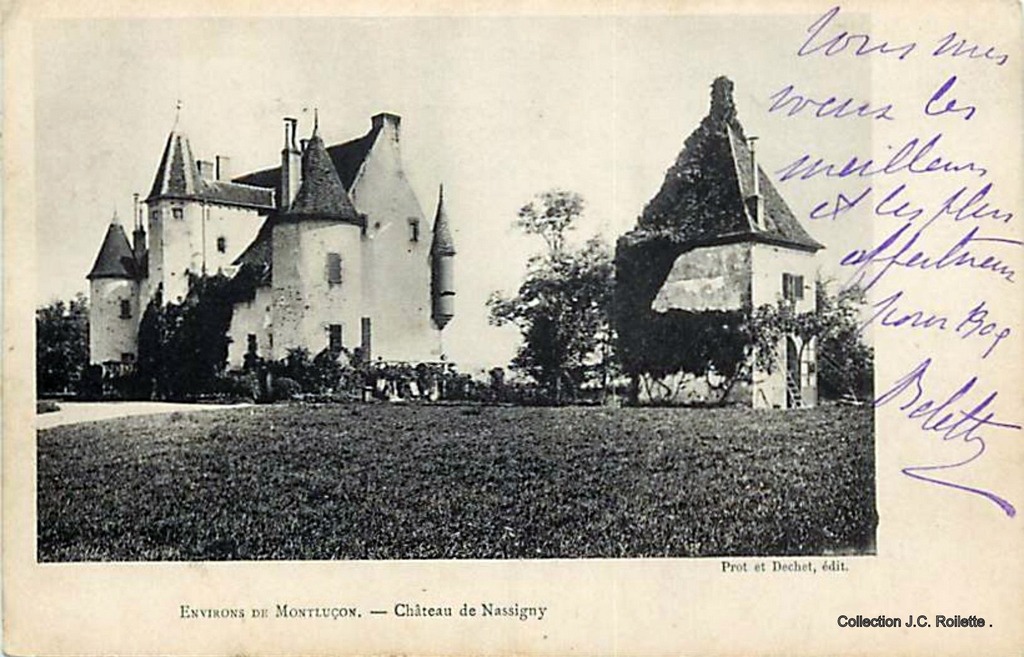 Tous mes
vœux les
meilleurs
et les plus
affectueux
pour
Prot et Dechet, édit.
ENVIRONS DE MONTLUÇON. — Château de Nassigny
Collection J.C. Roilette .